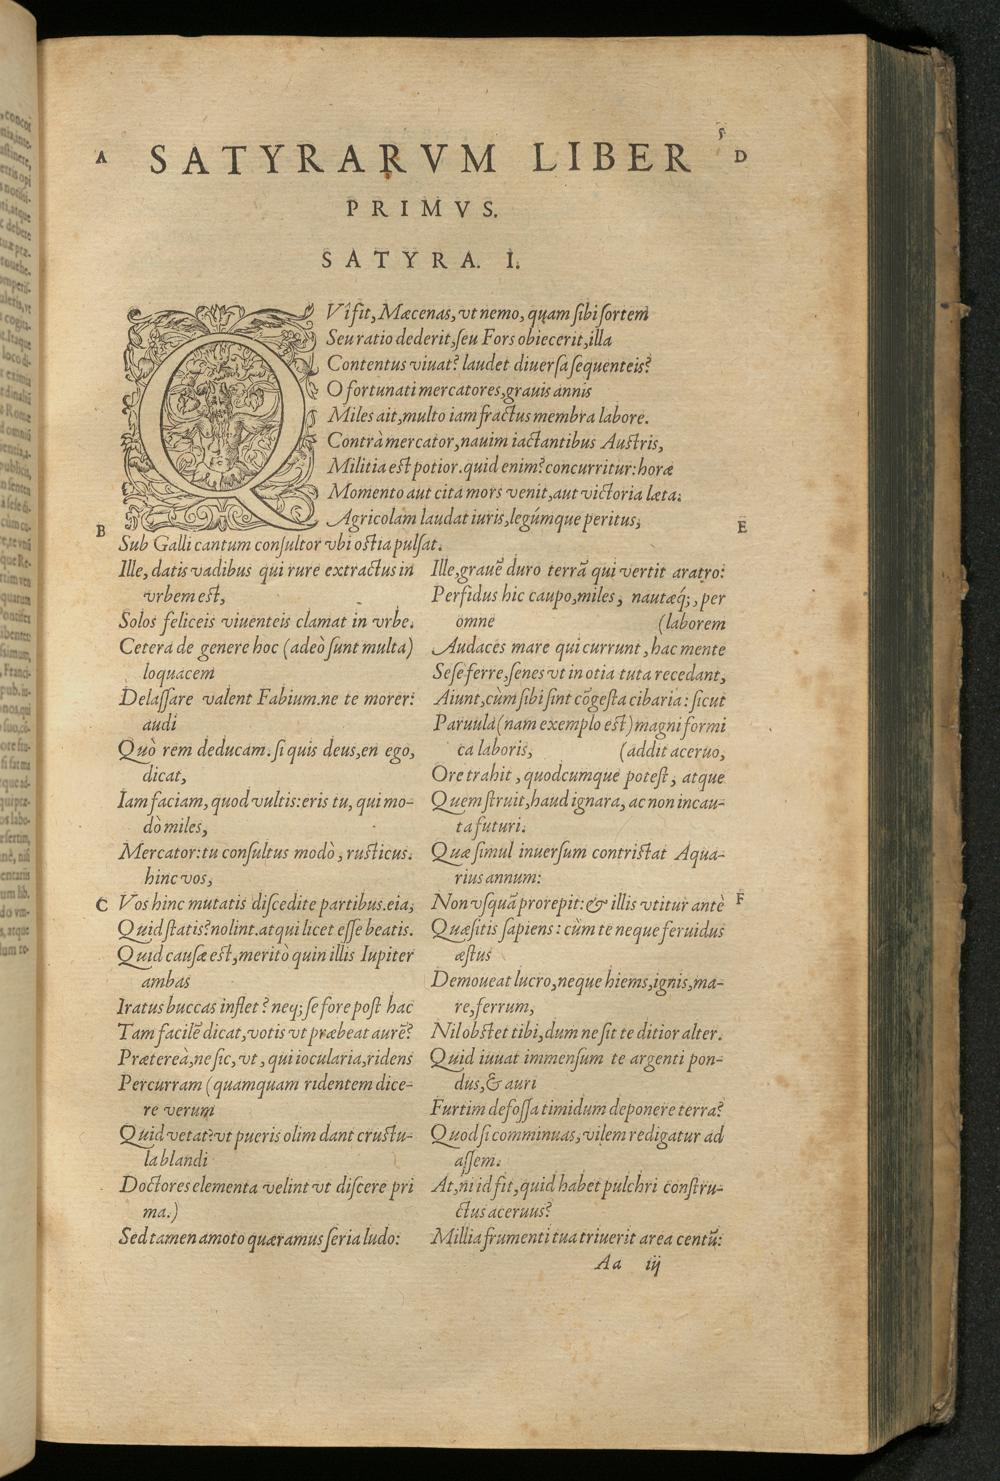 5
A SATYRARVM LIBER D
PRIMVS.
SATYRA. I.
QVî fit, Mæcenas, vt nemo, quam sibi sortem
Seu ratio dederit, seu Fors obiecerit, illa
Contentus viuat? laudet diuersa sequenteis?
O fortunati mercatores, grauis annis
Miles ait, multo iam fractus membra labore.
Contrà mercator, nauim iactantibus Austris,
Militia est potior. quid enim? concurritur: horæ
Momento aut cita mors venit, aut victoria læta.
Agricolam laudat iuris, legúmque peritus,
B
E
Sub Galli cantum consultor vbi ostia pulsat.
Ille, datis vadibus qui rure extractus in
vrbem est,
Solos feliceis viuenteis clamat in vrbe.
Cetera de genere hoc (adeò sunt multa)
loquacem
Delassare valent Fabium. ne te morer:
audi
Quò rem deducam. si quis deus, en ego,
dicat,
Iam faciam, quod vultis: eris tu, qui mo-
dò miles,
Mercator: tu consultus modò, rusticus.
hinc vos,
C Vos hinc mutatis discedite partibus. eia,
Quid statis? nolint. atqui licet esse beatis.
Quid causæ est, meritò quin illis Iupiter
ambas
Iratus buccas inflet? neq; se fore post hac
Tam facilē dicat, votis vt præbeat aurē?
Prætereà, ne sic, vt, qui iocularia, ridens
Percurram (quamquam ridentem dice-
re verum
Quid vetat? vt pueris olim dant crustu-
la blandi
Doctores elementa velint vt discere pri
ma.)
Sed tamen amoto quæramus seria ludo:
Ille, grauē duro terrā qui vertit aratro:
Perfidus hic caupo, miles, nautæq́;, per
omne (laborem
Audaces mare qui currunt, hac mente
Sese ferre, senes vt in otia tuta recedant,
Aiunt, cùm sibi sint cōgesta cibaria: sicut
Paruula (nam exemplo est) magni formi
ca laboris, (addit aceruo,
Ore trahit, quodcumque potest, atque
Quem struit, haud ignara, ac non incau-
ta futuri.
Quæ simul inuersum contristat Aqua-
rius annum:
Non vsquā prorepit: & illis vtitur antè F
Quæsitis sapiens: cùm te neque feruidus
æstus
Demoueat lucro, neque hiems, ignis, ma-
re, ferrum,
Nil obstet tibi, dum ne sit te ditior alter.
Quid iuuat immensum te argenti pon-
dus, & auri
Furtim defossa timidum deponere terra?
Quod si comminuas, vilem redigatur ad
assem.
At, ni id fit, quid habet pulchri constru-
ctus aceruus?
Millia frumenti tua triuerit area centū:
Aa iij